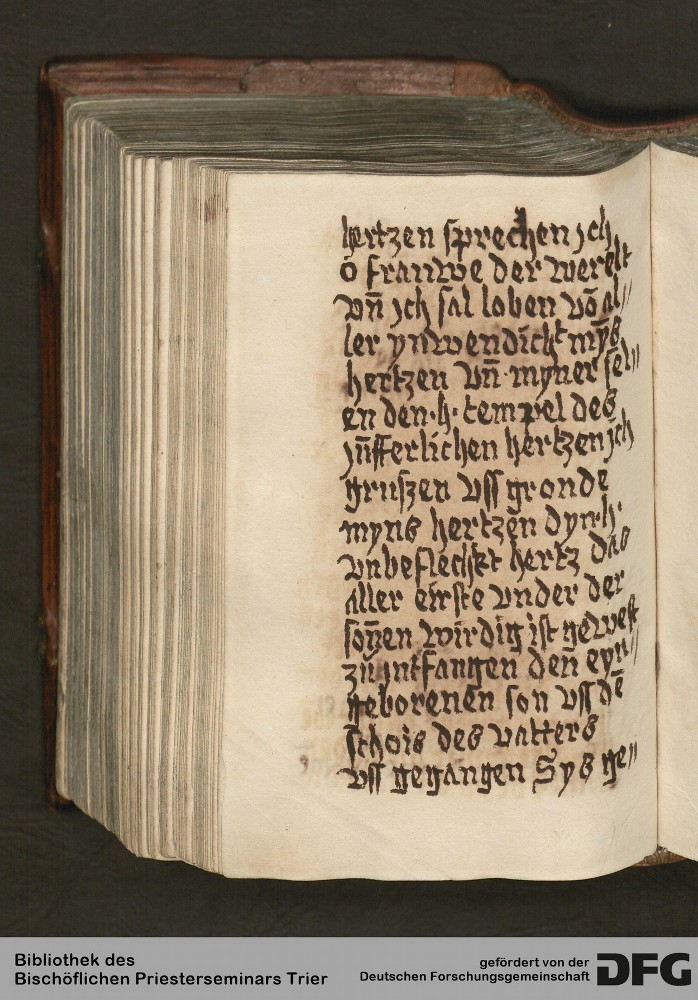 hertzen sprechen jch
o frauwe der werelt
vn̄ jch sal loben vō al〃
ler ynwendicht myns
hertzen vn̄ myner sel〃
en den ·h· tempel des
jūfferlichen hertzen jch
gruszen vss gronde
myns hertzen dyn ·h·
vnbeflechkt hertz das
aller eirste vnder der
sōnen wirdig ist gewest
zů jntfangen den̄ eyn〃
geborenen son vss dē
schois des vatters
vss gegangen Sys ge〃
Bibliothek des
Bischöflichen Priesterseminars Trier
gefördert von der
Deutschen Forschungsgemeinschaft
DFG